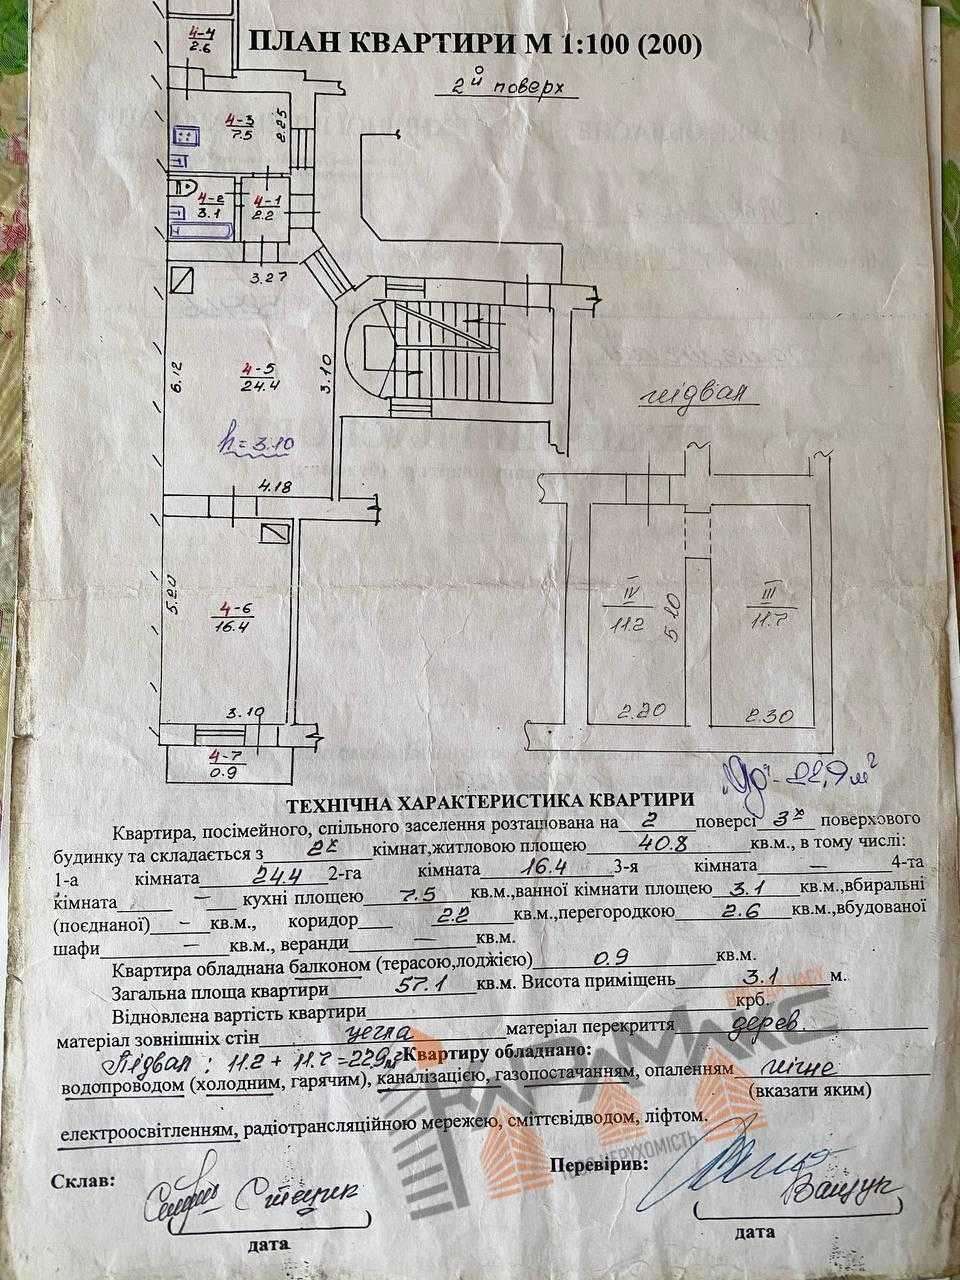 ПЛАН КВАРТИРИ М 1:100 (200)
2й поверх
4-4
2.6
4-3
7.5
2.25
4-2
3.1
4-1
2.2
3.27
6.12
4-5
24.4
3.10
h = 3.10
4.18
підвал
5.20
4-6
16.4
IV
11.2
5.10
III
11.7
3.10
2.20
2.30
4-7
0.9
22,9 м²
ТЕХНІЧНА ХАРАКТЕРИСТИКА КВАРТИРИ
Квартира, посімейного, спільного заселення розташована на 2 поверсі 3х поверхового
будинку та складається з 2х кімнат,житловою площею 40.8 кв.м., в тому числі:
1-а кімната 24.4 2-га кімната 16.4 3-я кімната — 4-та
кімната — кухні площею 7.5 кв.м.,ванної кімнати площею 3.1 кв.м.,вбиральні
(поєднаної) — кв.м., коридор 2.2 кв.м.,перегородкою 2.6 кв.м.,вбудованої
шафи — кв.м., веранди — кв.м.
Квартира обладнана балконом (терасою,лоджією) 0.9 кв.м.
Загальна площа квартири 57.1 кв.м. Висота приміщень 3.1 м.
Відновлена вартість квартири крб.
матеріал зовнішніх стін цегла матеріал перекриття дерев.
Підвал: 11.2 + 11.7 = 22.9 м² Квартиру обладнано:
водопроводом (холодним, гарячим), каналізацією, газопостачанням, опаленням пічне
(вказати яким)
електроосвітленням, радіотрансляційною мережею, сміттєвідводом, ліфтом.
Склав: Перевірив:
Ващук
дата дата
КАРАМАКС
НЕРУХОМІСТЬ